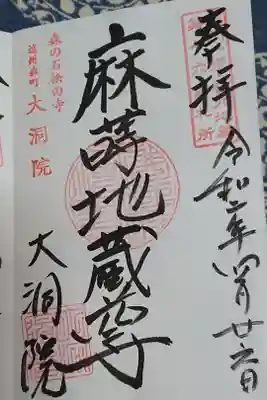 奉拝
令和二年四月廿六日
麻蒔地蔵尊
森の石松の寺
遠州森町
大洞院
大洞院